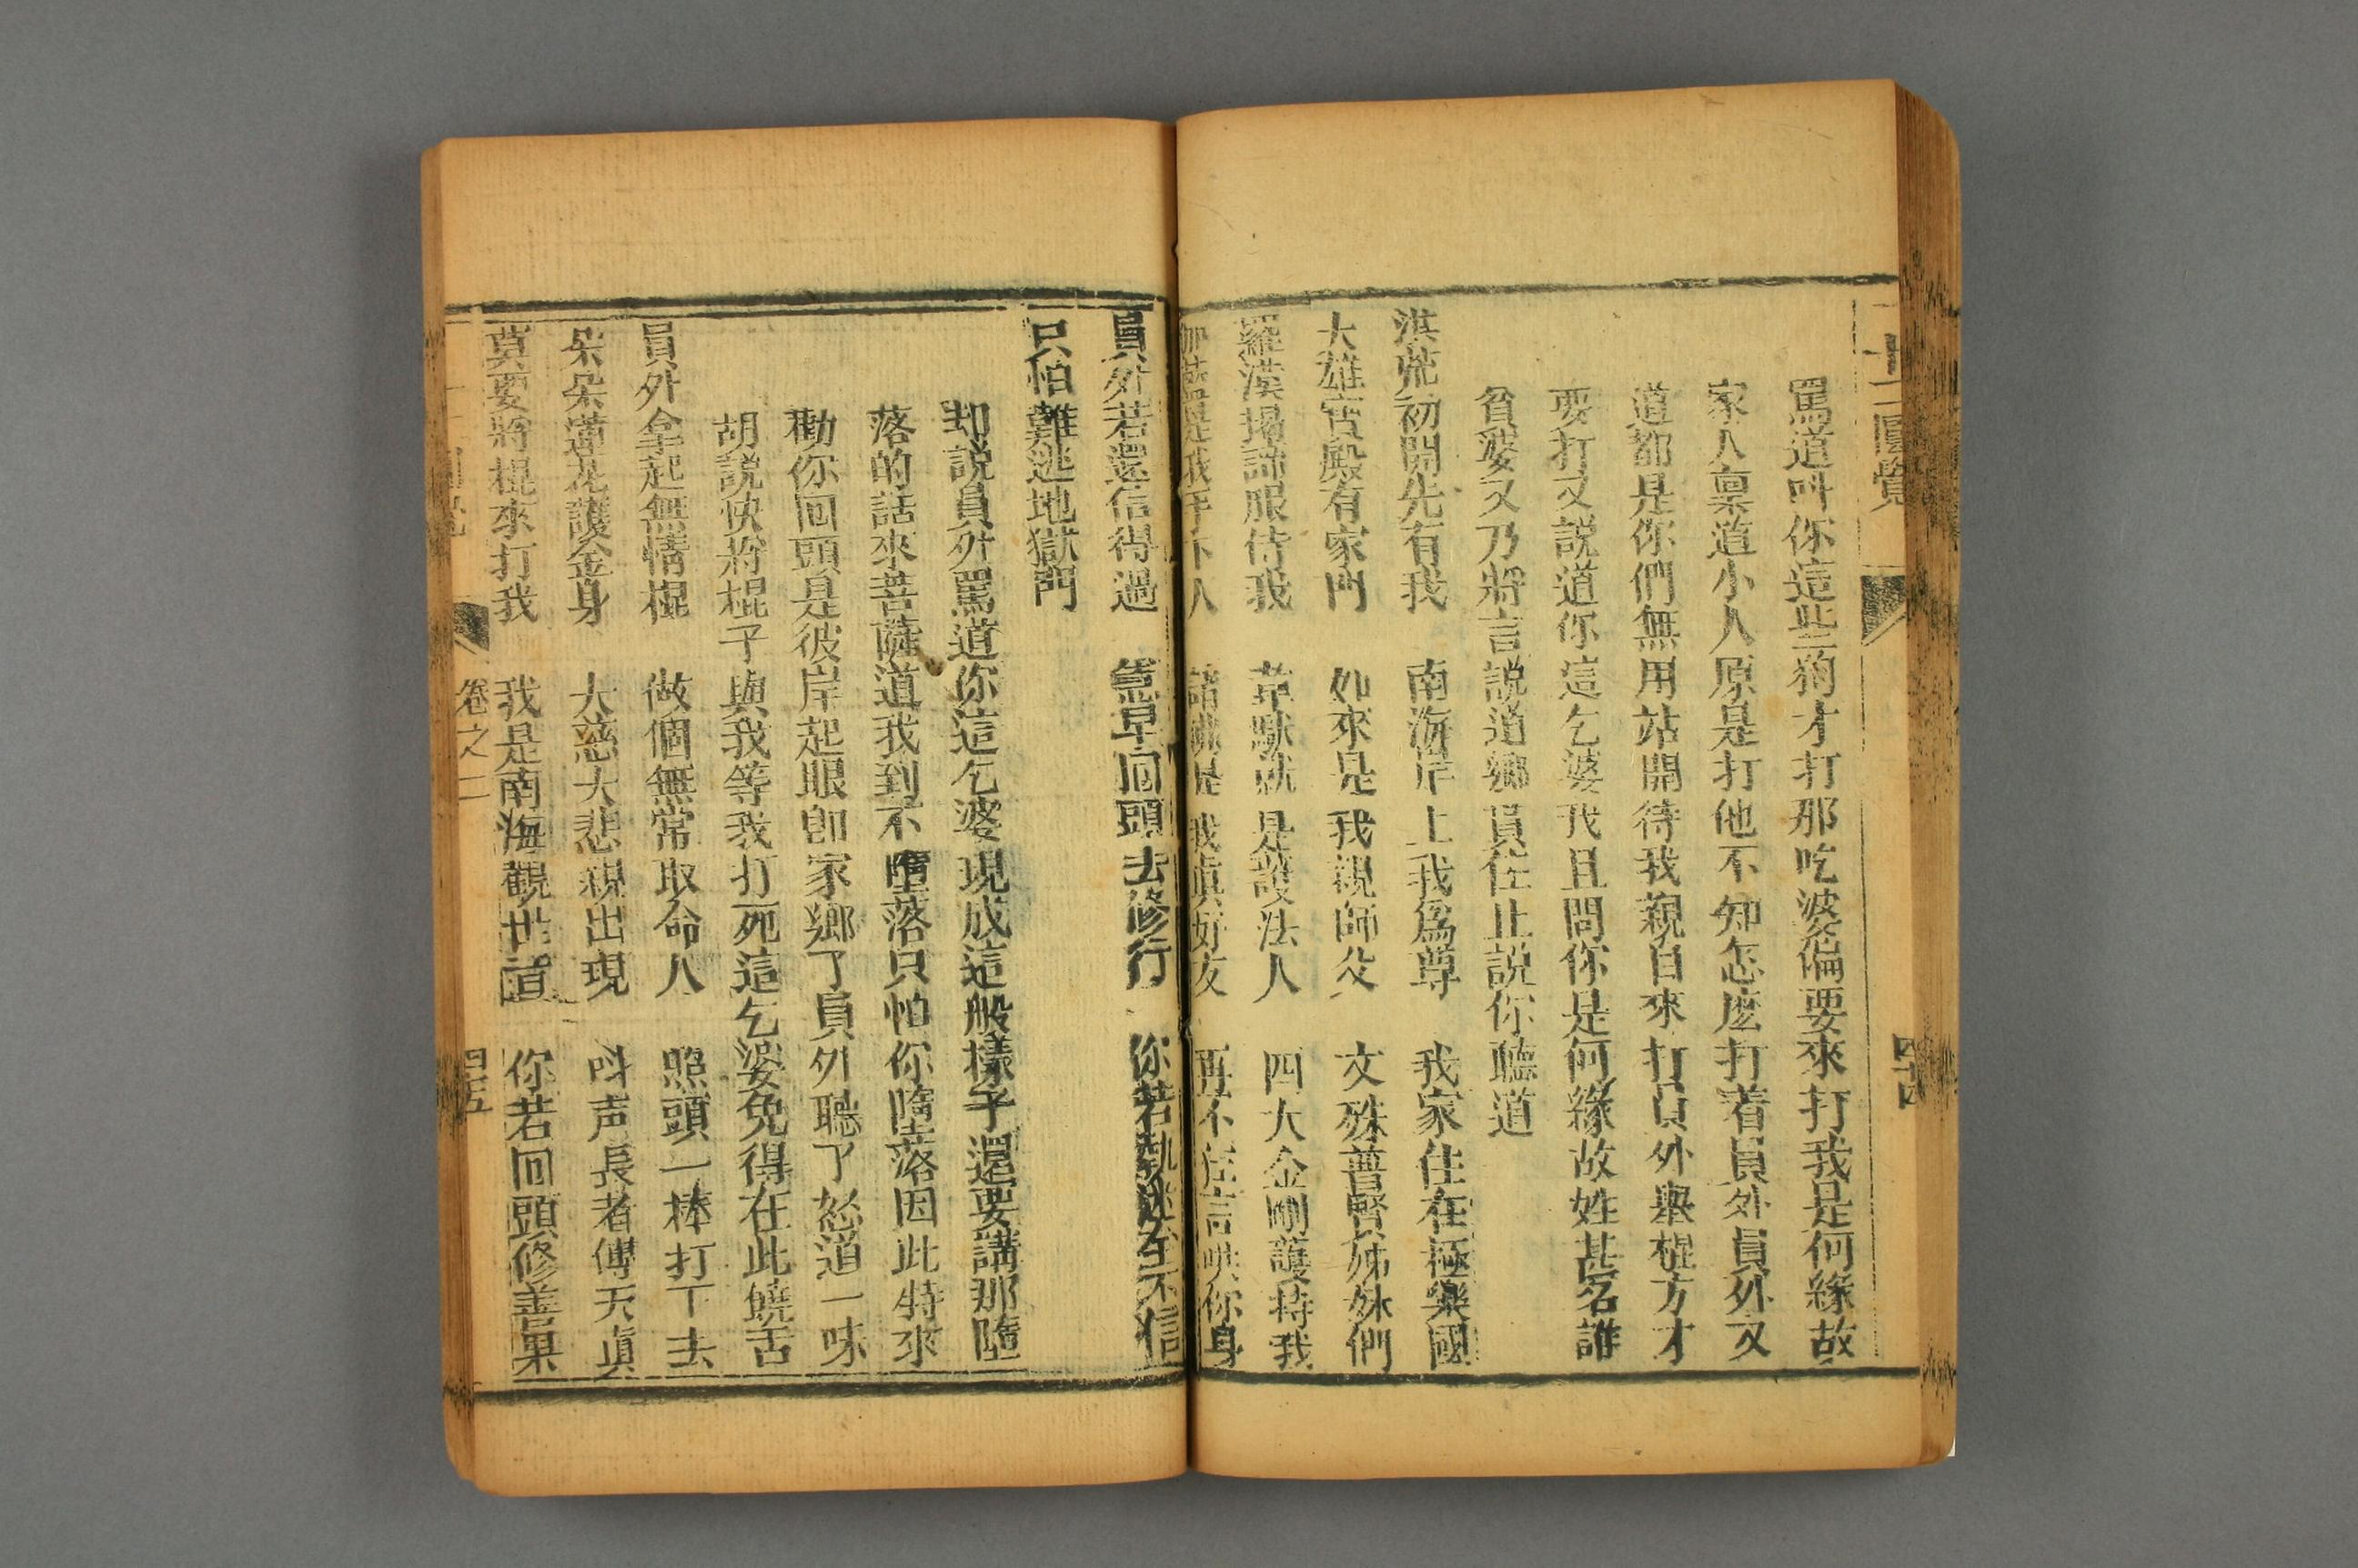 十二圓覺
四十四
罵道叫你這些狗才打那吃婆偏要來打我是何緣故
家人禀道小人原是打他不知怎麽打着員外員外又
道都是你們無用站開待我親自來打員外舉棍方才
要打又説道你這乞婆我且問你是何緣故姓甚名誰
貧婆又乃將言説道鄉員住止説你聽道
淇荒初開先有我 南海岸上我為尊 我家住在極樂國
大雄宮殿有家門 如來是我親師父 文殊普賢姊妹們
羅漢揭諦服侍我 韋馱就是護法人 四大金剛護持我
伽藍盡是我手下人 諸佛是我眞好友 再不誑言哄你身
員外若還信得過 急早回頭去修行 你若執迷全不信
只怕難逃地獄門
却説員外罵道你這乞婆現成這般樣子還要講那墮
落的話來菩薩道我到不墮落只怕你墮落因此特來
勸你回頭是彼岸起眼卽家鄉了員外聽了怒道一味
胡説快將棍子與我等我打死這乞婆免得在此饒舌
員外拿起無情棍 做個無常取命人 照頭一棒打下去
朵朵蓮花護金身 大慈大悲親出現 叫声長者傅天眞
莫要將棍來打我 我是南海觀世音 你若回頭修善果
卷之二
四五